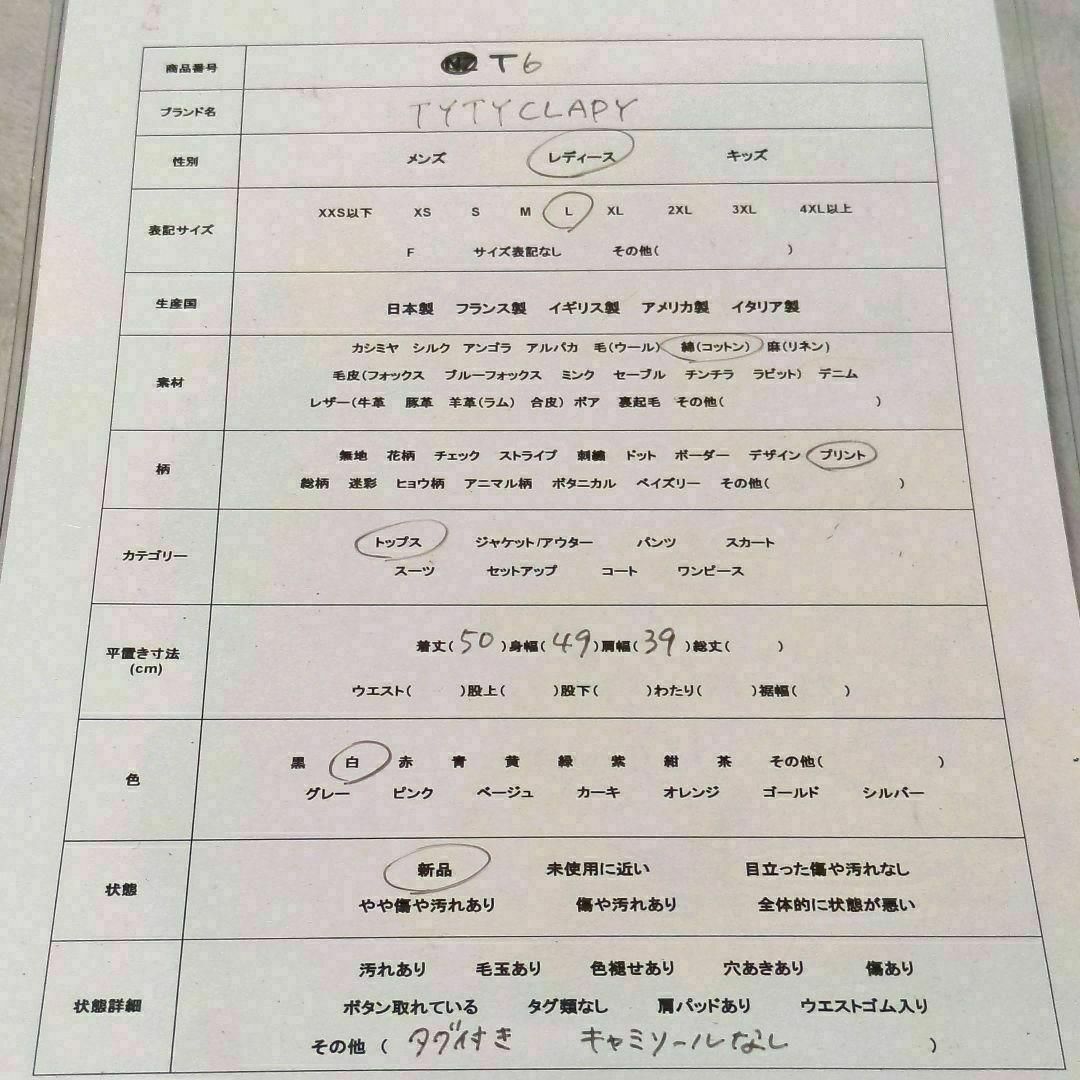 商品番号 T6
ブランド名 TYTYCLAPY
性別 メンズ レディース キッズ
表記サイズ XXS以下 XS S M L XL 2XL 3XL 4XL以上
F サイズ表記なし その他( )
生産国 日本製 フランス製 イギリス製 アメリカ製 イタリア製
素材 カシミヤ シルク アンゴラ アルパカ 毛(ウール) 綿(コットン) 麻(リネン)
毛皮(フォックス ブルーフォックス ミンク セーブル チンチラ ラビット) デニム
レザー(牛革 豚革 羊革(ラム) 合皮) ボア 裏起毛 その他( )
柄 無地 花柄 チェック ストライプ 刺繍 ドット ボーダー デザイン プリント
総柄 迷彩 ヒョウ柄 アニマル柄 ボタニカル ペイズリー その他( )
カテゴリー トップス ジャケット/アウター パンツ スカート
スーツ セットアップ コート ワンピース
平置き寸法 (cm) 着丈(50)身幅(49)肩幅(39)総丈( )
ウエスト( )股上( )股下( )わたり( )裾幅( )
色 黒 白 赤 青 黄 緑 紫 紺 茶 その他( )
グレー ピンク ベージュ カーキ オレンジ ゴールド シルバー
状態 新品 未使用に近い 目立った傷や汚れなし
やや傷や汚れあり 傷や汚れあり 全体的に状態が悪い
状態詳細 汚れあり 毛玉あり 色褪せあり 穴あきあり 傷あり
ボタン取れている タグ類なし 肩パッドあり ウエストゴム入り
その他 ( タグ付き キャミソールなし )